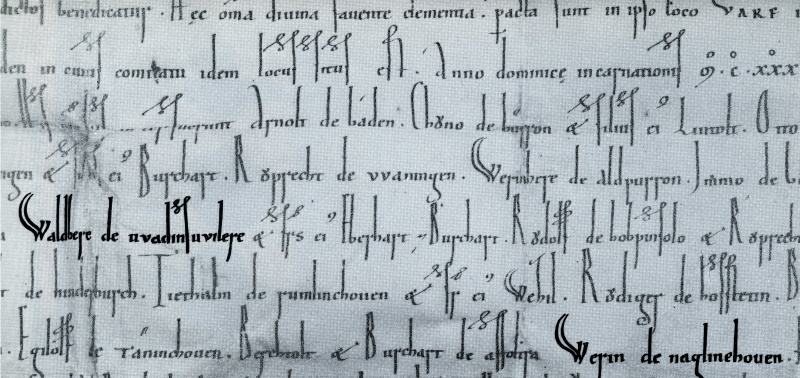 benedicatur. Hęc om̄a diuina fauente clementia. pacta sunt in ipso loco VARF
in cuius comitatu idem locus situs est. Anno dominicę incarnationis M̊. C̊. XXX
Arnolt de baden. Chŏno de búrron & filius ei' Liutolt. Otto
& ei' Burchart. Rŏprecht de vvaningen. Werinhere de aldpurron. Immo de
Waldbere de uvadinsuvilere & frs ei' Eberhart. Burchart. Rŏdolf de bobpinsolo & Rŏprecht
de hindeburch. Tiethalm de rumlinchouen & fr ei' Wezil. Rŏdiger de hofstetin.
Egilolf de Taninchouen. Berchtolt & Burchart de Werin de naglinchouen.